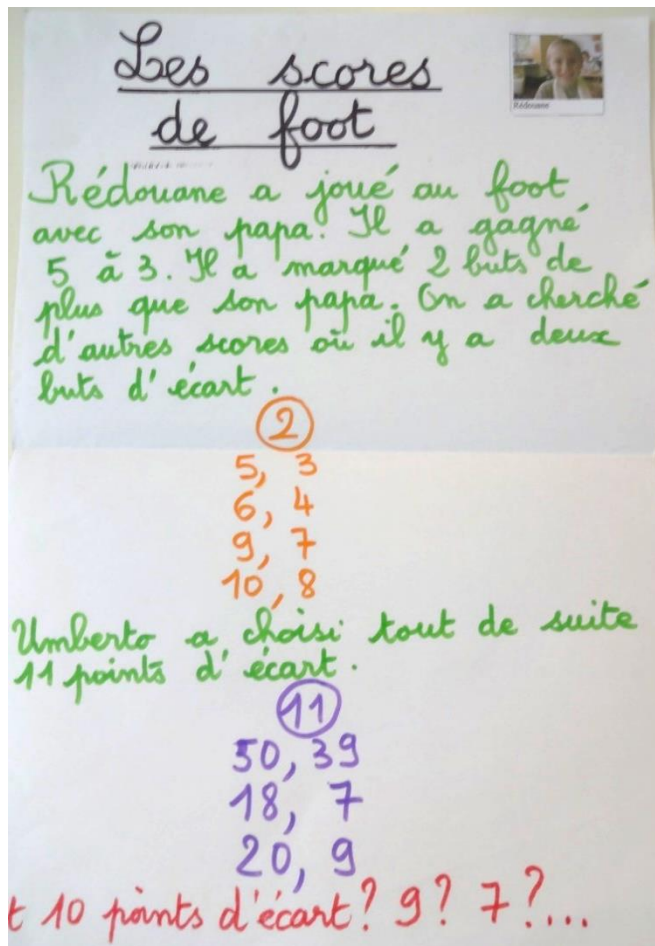 Les scores
de foot
Rédouane
Rédouane a joué au foot
avec son papa. Il a gagné
5 à 3. Il a marqué 2 buts de
plus que son papa. On a cherché
d'autres scores où il y a deux
buts d'écart.
2
5, 3
6, 4
9, 7
10, 8
Umberto a choisi tout de suite
11 points d'écart.
11
50, 39
18, 7
20, 9
t 10 points d'écart? 9? 7?...